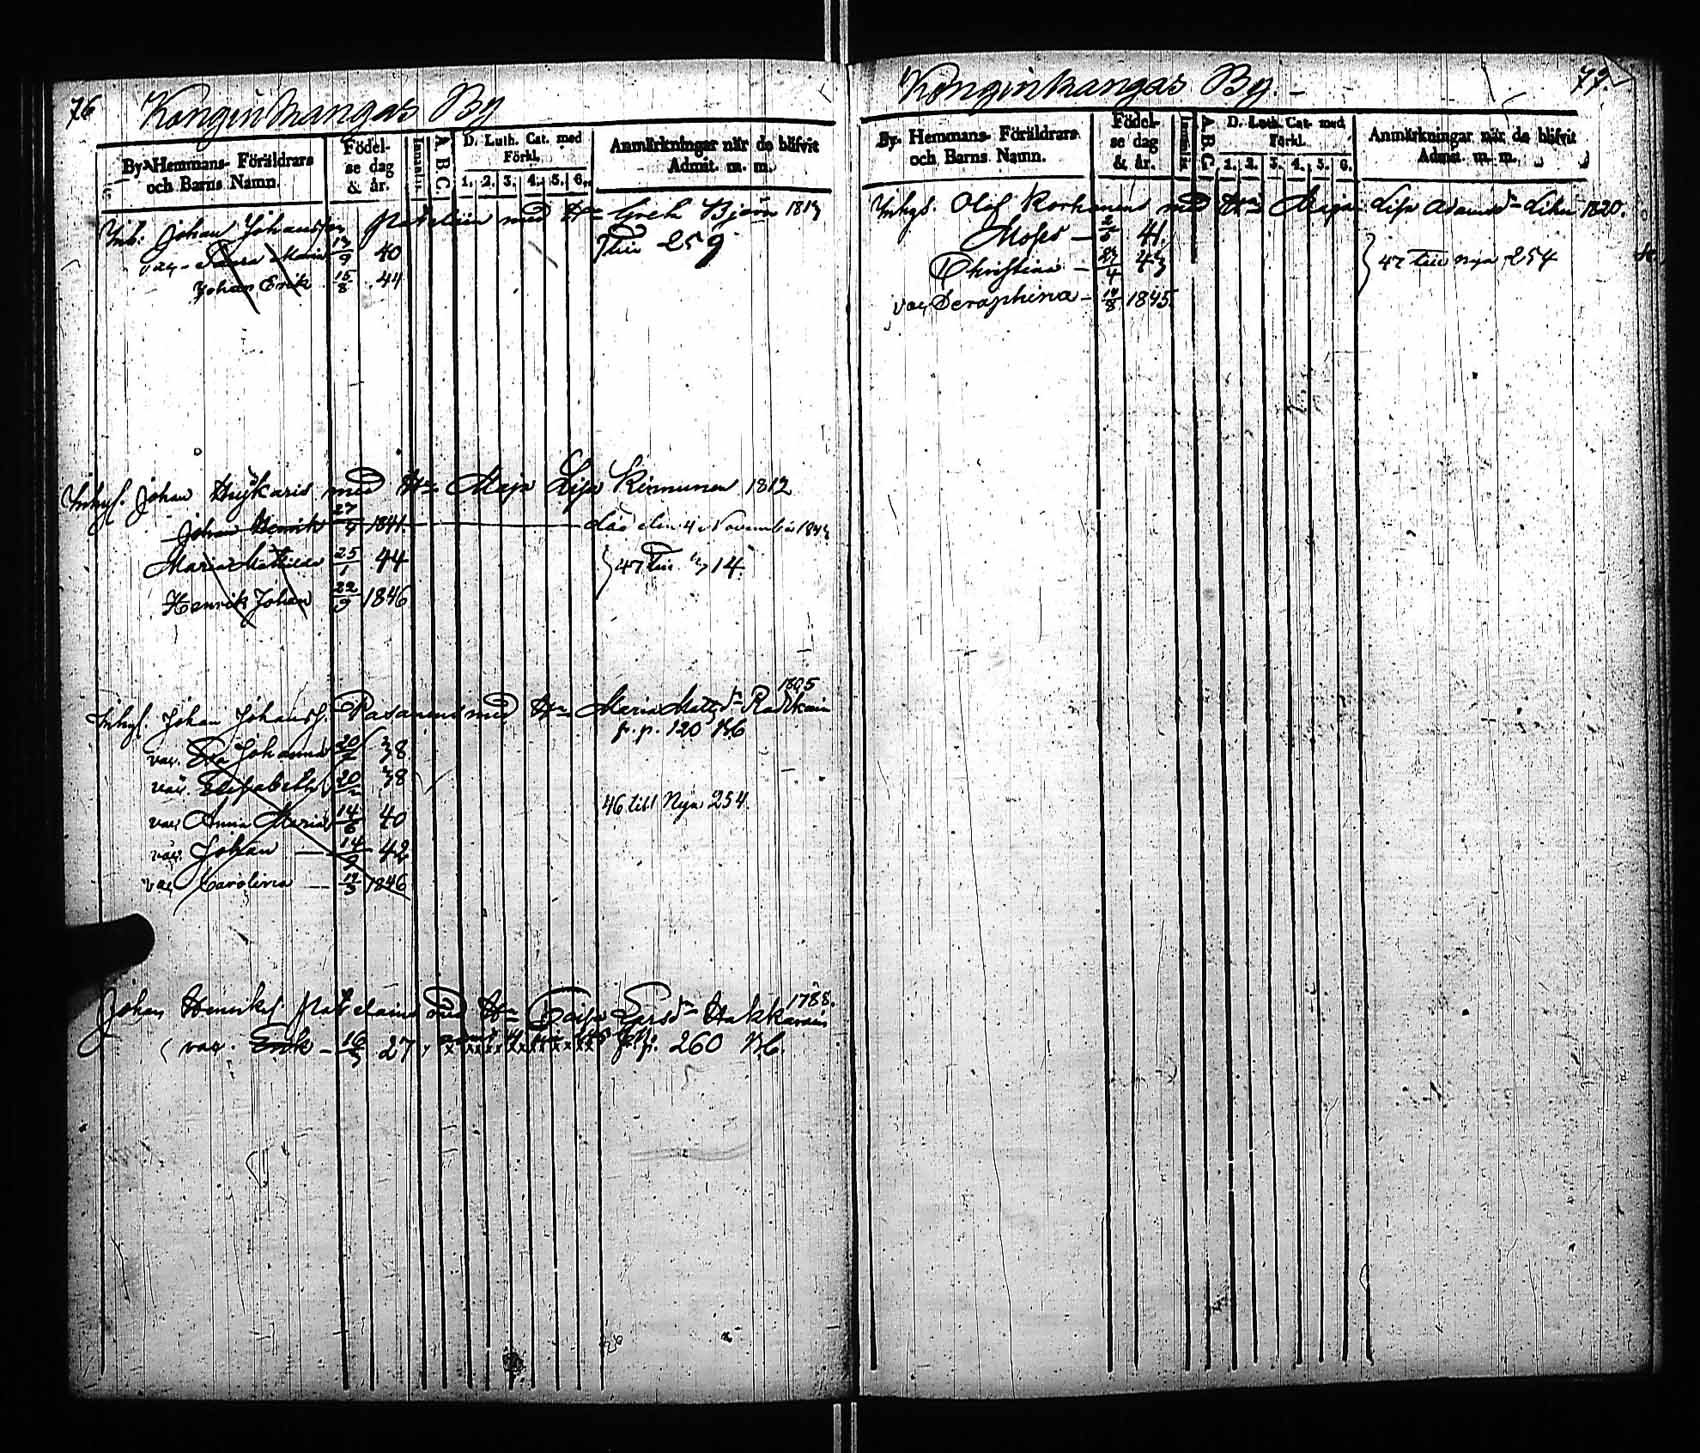 76 Konginkangas By
By- Hemmans- Föräldrars och Barns Namn.
Födelse dag & år.
Innanl.
A.B.C.
D. Luth. Cat. med Förkl.
1. 2. 3. 4. 5. 6.
Anmärkningar när de blifvit Admit. m. m.
Inh: Johan Johansson med H Greta Björn 1817
var Maria 13/9 40 Till 259
Johan Erik 15/8 44
Inhys. Johan med Hu Maja Lisa Kinnunen 1812
Johan Henrik 27/9 1841. död den 4 November 184
Maria Mathilda 25/1 44 47 Till 14.
Henrik Johan 22/9 1846
Inhys. Johan Johanss. Pasanen med Hu Maria Matsdr 1805
p. p. 120 K.b
var. Eva Johanna 20/2 38
var. Elisabeth 20/2 38
46 till Nya 254
var Anna Maria 14/6 40
var. Johan 14/9 42
var Carolina 12/3 1846
Johan Henriks med Hu Caisa Larsdr Hakkarain 1788.
var. Erik 16/3 27, p. 260 K.b.
Konginkangas By. 77.
By- Hemmans- Föräldrars och Barns Namn.
Födelse dag & år.
Innanl.
A.B.C.
D. Luth. Cat. med Förkl.
1. 2. 3. 4. 5. 6.
Anmärkningar när de blifvit Admit. m. m.
Inhys. Olof Korhonen med Hu Maja Lisa Adamsdr 1820.
Moses 2/5 41.
Christina 4 43 47 till nya 254
var Seraphina 14/8 1845.